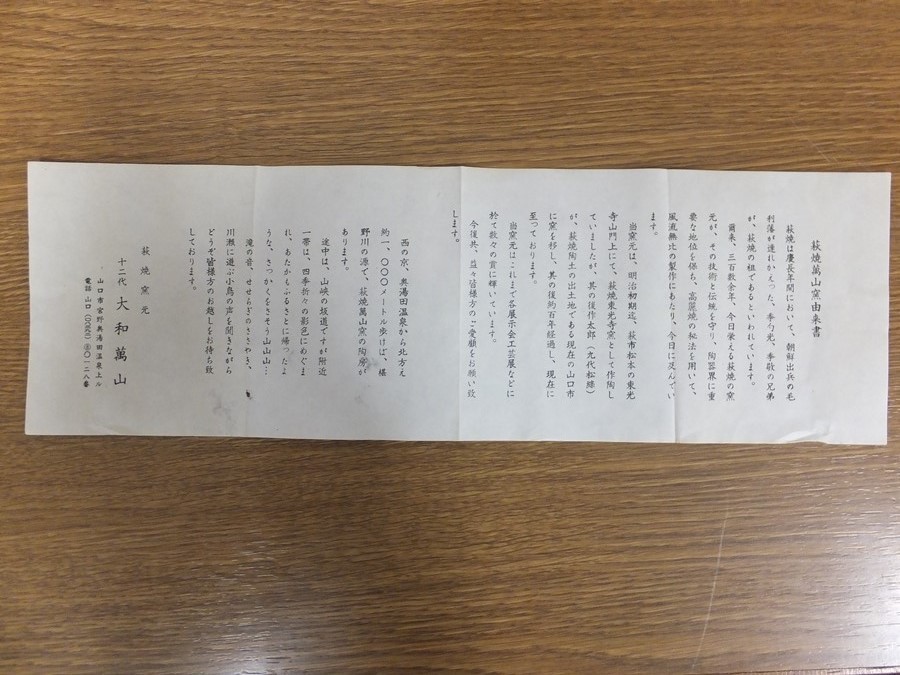 萩焼萬山窯由来書
萩焼は慶長年間において、朝鮮出兵の毛
利藩が連れかえった、李勺光、李敬の兄弟
が、萩焼の祖であるといわれています。
爾来、三百数余年、今日栄える萩焼の窯
元が、その技術と伝統を守り、陶器界に重
要な地位を保ち、高麗焼の秘法を用いて、
風流無比の製作にあたり、今日に及んでい
ます。
当窯元は、明治初期迄、萩市松本の東光
寺山門上にて、萩焼東光寺窯として作陶し
ていましたが、其の後作太郎（九代松緑）
が、萩焼陶土の出土地である現在の山口市
に窯を移し、其の後約百年経過し、現在に
至っております。
当窯元はこれまで各展示会工芸展などに
於て数々の賞に輝いています。
今後共、益々皆様方のご愛顧をお願い致
します。
西の京、奥湯田温泉から北方え
約一、〇〇〇メートル歩けば、椹
野川の源で、萩焼萬山窯の陶房が
あります。
途中は、山峡の坂道ですが附近
一帯は、四季折々の影色にめぐま
れ、あたかもふるさとに帰ったよ
うな、さっかくをさそう山山山…
滝の音、せせらぎのささやき、
川瀬に遊ぶ小鳥の声を聞きながら
どうぞ皆様方のお越しをお待ち致
しております。
萩焼窯元
十二代 大和萬山
山口市宮野奥湯田温泉上ル
電話 山口